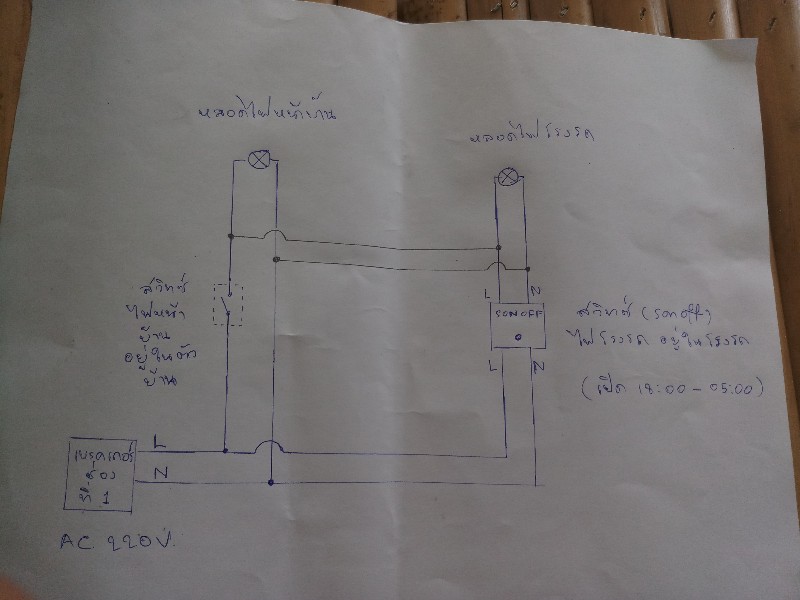 หลอดไฟหน้าบ้าน
หลอดไฟโรงรถ
สวิทช์
ไฟหน้า
บ้าน
อยู่ในตัว
บ้าน
L
N
SONOFF
L
N
สวิทช์ (sonoff)
ไฟโรงรถ อยู่ในโรงรถ
(เปิด 18:00 - 05:00)
L
N
เบรคเกอร์
ช่อง
ที่ 1
AC 220V.